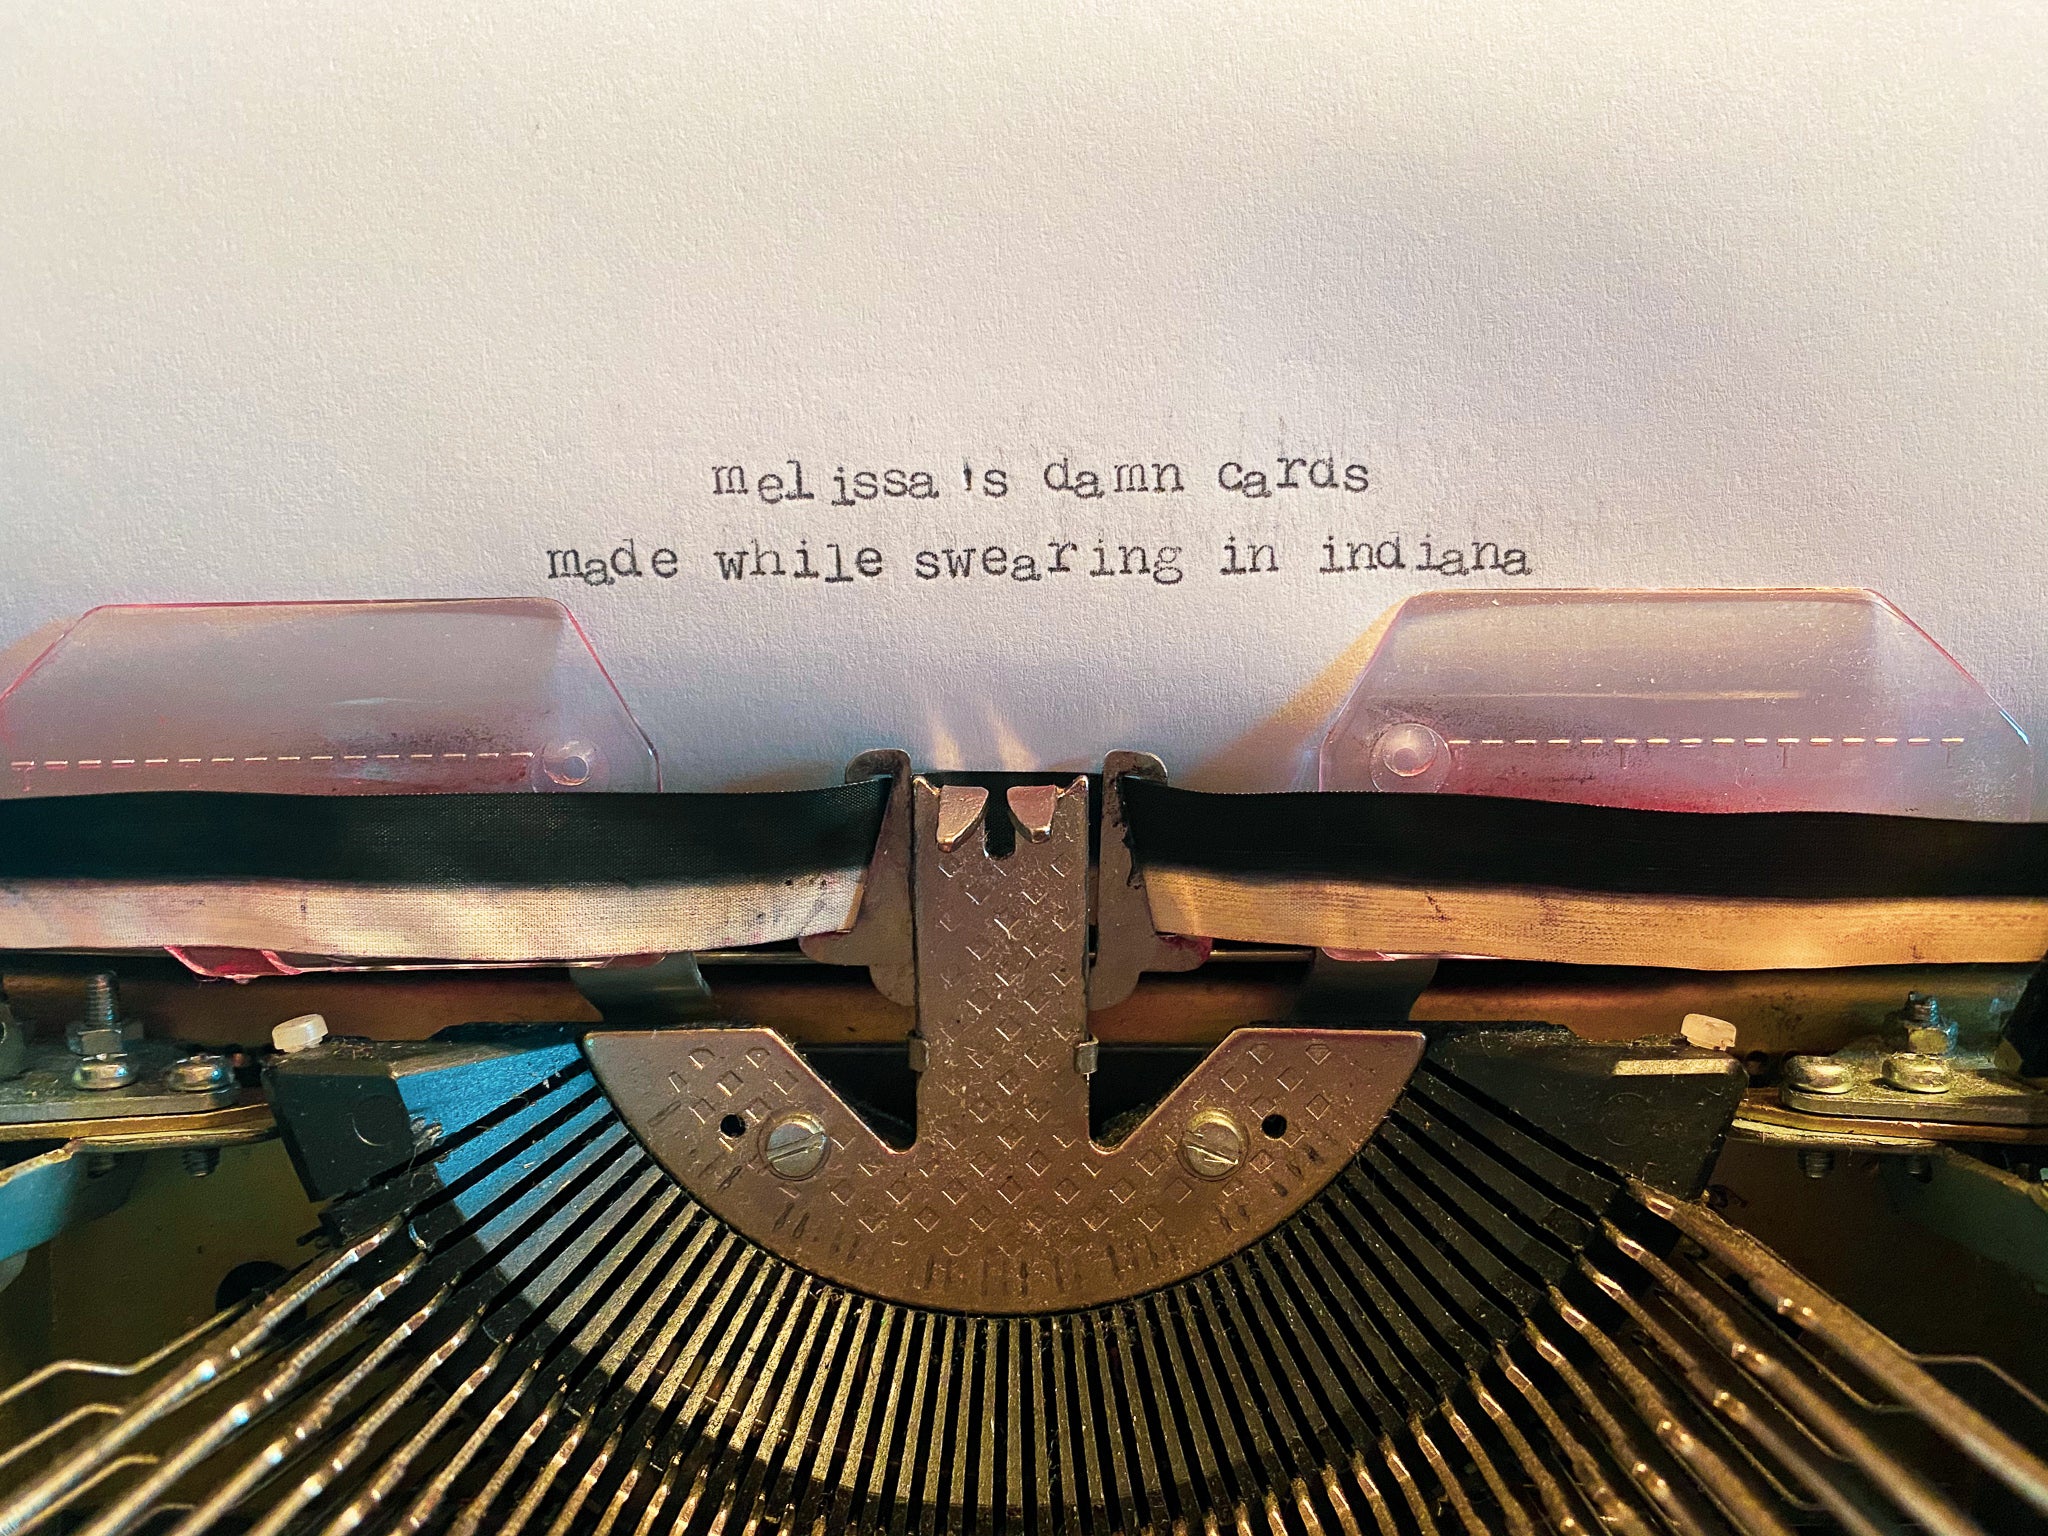 melissa's damn cards
made while swearing in indiana